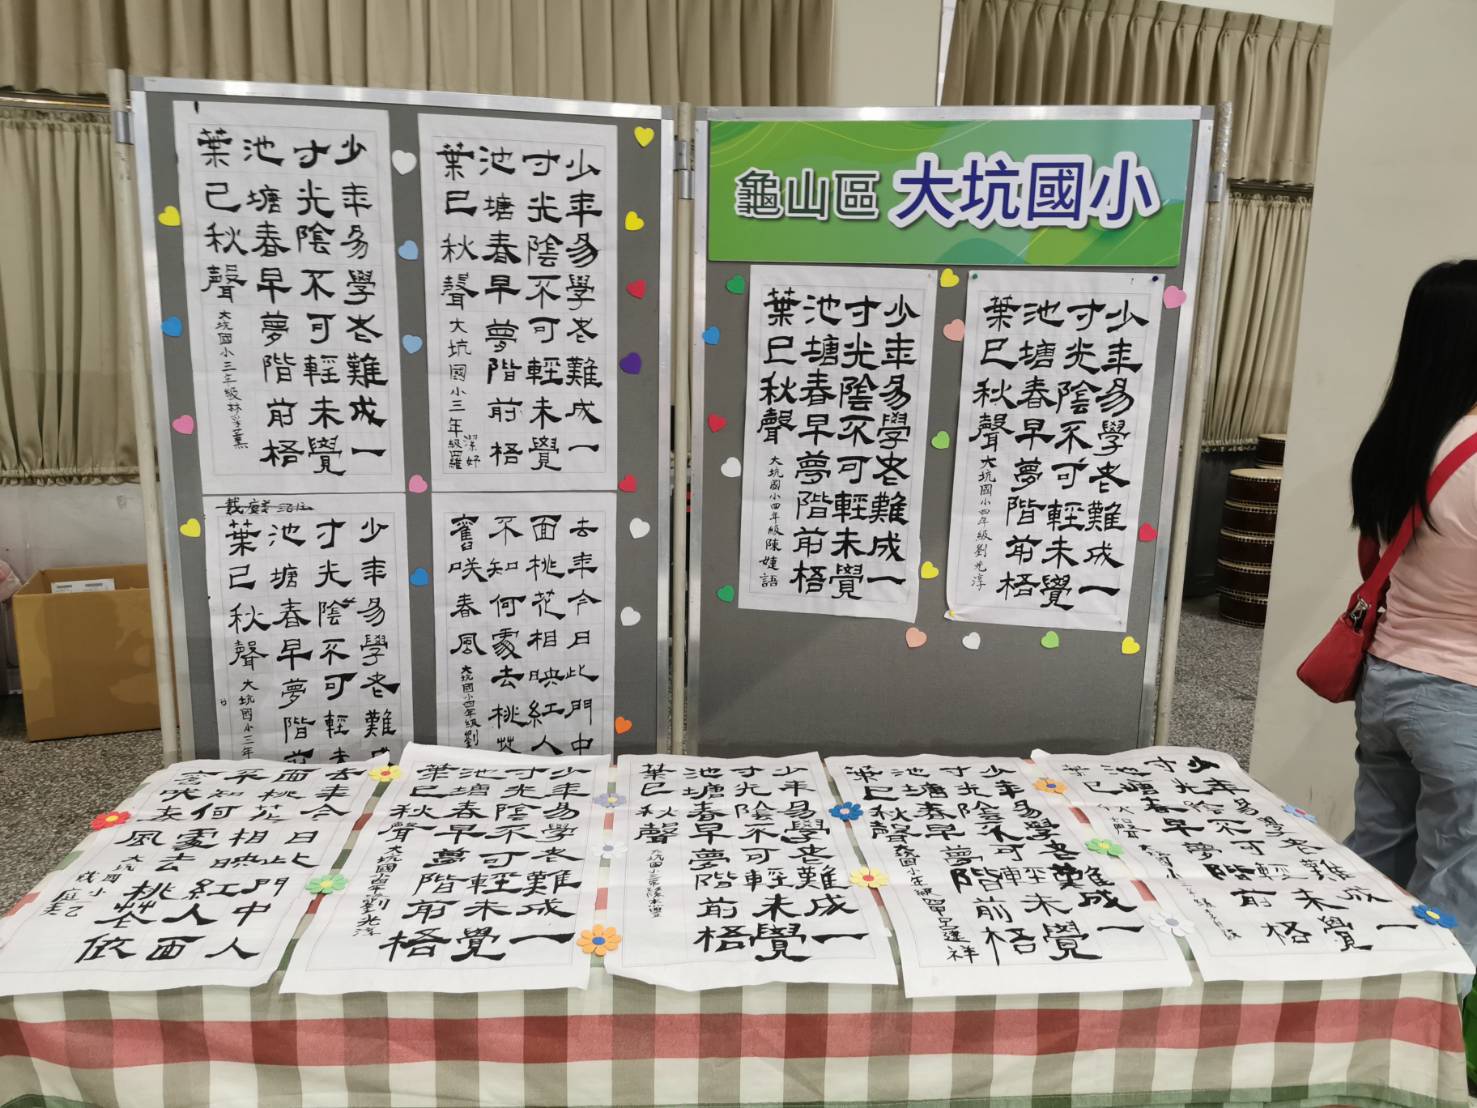 龜山區 大坑國小
少年易學老難成一
寸光陰不可輕未覺
池塘春早夢階前梧
葉已秋聲
大坑國小三年級林
少年易學老難成一
寸光陰不可輕未覺
池塘春早夢階前梧
葉已秋聲
大坑國小三年級羅潔妤
少年易學老難
寸光陰不可輕未
池塘春早夢階前
葉已秋聲
大坑國小三年
去年今日此門中
面桃花相映紅人
不知何處去桃花
舊咲春風
大坑國小四年級劉
少年易學老難成一
寸光陰不可輕未覺
池塘春早夢階前梧
葉已秋聲
大坑國小四年級陳婕語
少年易學老難成一
寸光陰不可輕未覺
池塘春早夢階前梧
葉已秋聲
大坑國小四年級劉光淳
去年今日此門中人
面桃花相映紅人面
不知何處去桃花依
咲春風
大坑國小
少年易學老難成一
寸光陰不可輕未覺
池塘春早夢階前梧
葉已秋聲
大坑國小四年劉光淳
少年易學老難成一
寸光陰不可輕未覺
池塘春早夢階前梧
葉已秋聲
坑國小
少年易學老難成一
寸光陰不可輕未覺
池塘春早夢階前梧
葉已秋聲
大坑國小五年級甲呂建祥
少年易學老難成一
寸光陰不可輕未覺
池塘春早夢階前梧
葉已秋聲